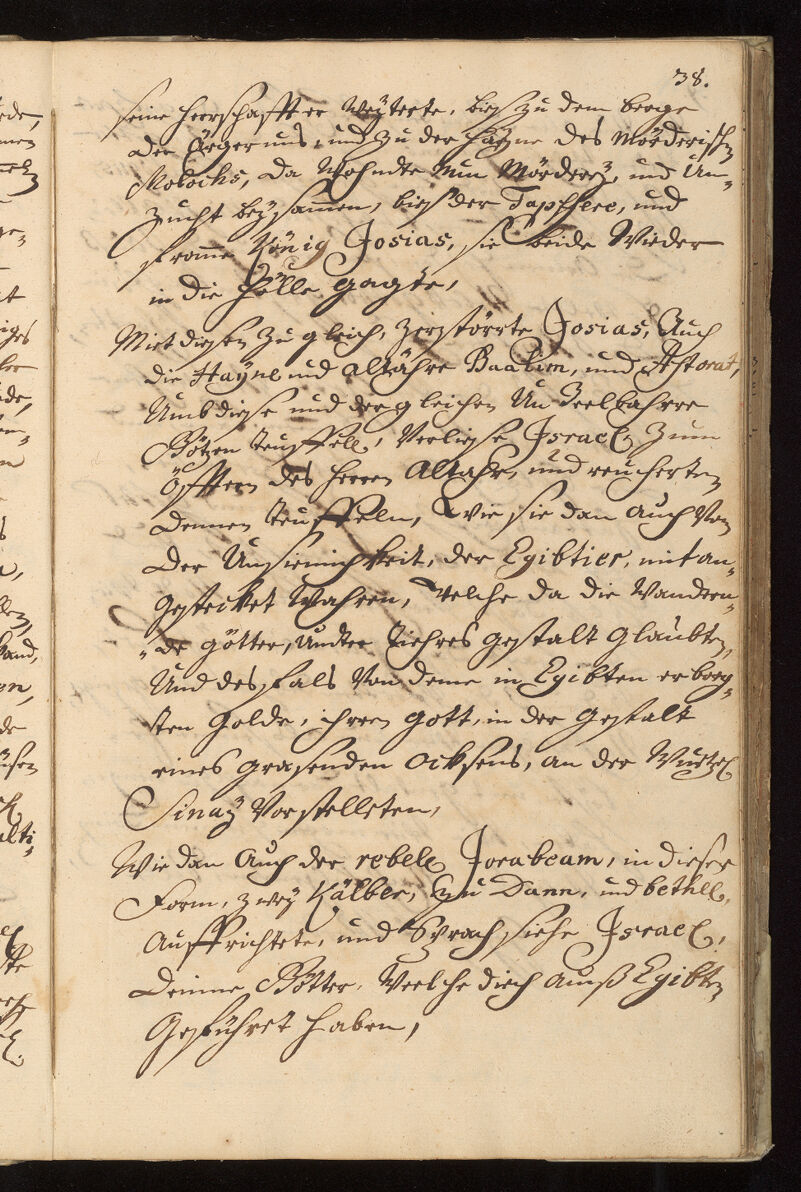 38.
seine herrschafft er weÿterte, bies zu dem berge
der Ärgernus, und zu der haÿne des Mörderischen
Molochs, da wohndte nun Mördereÿ, und Un„
zucht beÿsamen, bies der Tapffere, und
frome König Josias, sie beide wieder
in die hölle gagte,
Miet diesen zu gleich, zerstörrte Josias, Auch
die Haÿne und altähre Baalim, und Astorat,
Umb diese und der gleichen
Götzen teuffell, verliese Israel zum
öfftern des herrn altahr, und reucherten
dennen teuffeln, wie sie dan auch von
der Unsiennichkeit, der Egibtier, mit an„
gestecket wahren, welche da die wandern„
„de götter, undter tiehres gestalt glaubten,
Und desfals von deme in Egibten er borg„
ten golde, ihren gott, in der gestalt
eines grasenden ocksens, an der wurtzel
Sinaÿ vorstelleten,
Wie dan auch der rebele Jorabeam, in dieser
Form, zweÿ Kälber, zu Dann, und bethel,
auffrichtete, und sprach siehe Israel,
deinne Götter, weelche diech auß Egibten
geführet haben,